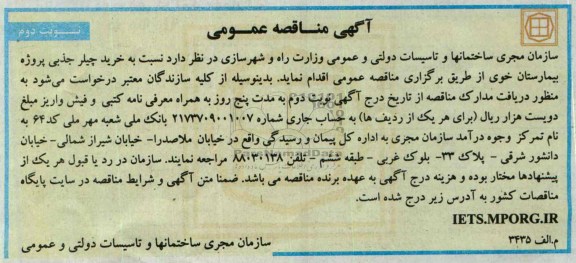 آگهی مناقصه عمومی
نوبت دوم
سازمان مجری ساختمانها و تاسیسات دولتی و عمومی وزارت راه و شهرسازی در نظر دارد نسبت به خرید چیلر جذبی پروژه
بیمارستان خوی از طریق برگزاری مناقصه عمومی اقدام نماید. بدینوسیله از کلیه سازندگان معتبر درخواست می‌شود به
منظور دریافت مدارک مناقصه از تاریخ درج آگهی نوبت دوم به مدت پنج روز به همراه معرفی نامه کتبی و فیش واریز مبلغ
دویست هزار ریال (برای هر یک از ردیف ها) به حساب جاری شماره ۲۱۷۳۷۰۹۰۰۱۰۰۷ بانک ملی شعبه مهر ملی کد۶۴ به
نام تمرکز وجوه درآمد سازمان مجری به اداره کل پیمان و رسیدگی واقع در خیابان ملاصدرا- خیابان شیراز شمالی- خیابان
دانشور شرقی - پلاک ۳۳- بلوک غربی - طبقه ششم - تلفن ۸۸۰۳۰۱۳۸ مراجعه نمایند. سازمان در رد یا قبول هر یک از
پیشنهادها مختار بوده و هزینه درج آگهی به عهده برنده مناقصه می باشد. ضمنا متن آگهی و شرایط مناقصه در سایت پایگاه
مناقصات کشور به آدرس زیر درج شده است.
IETS.MPORG.IR
م.الف ۳۴۳۵
سازمان مجری ساختمانها و تاسیسات دولتی و عمومی